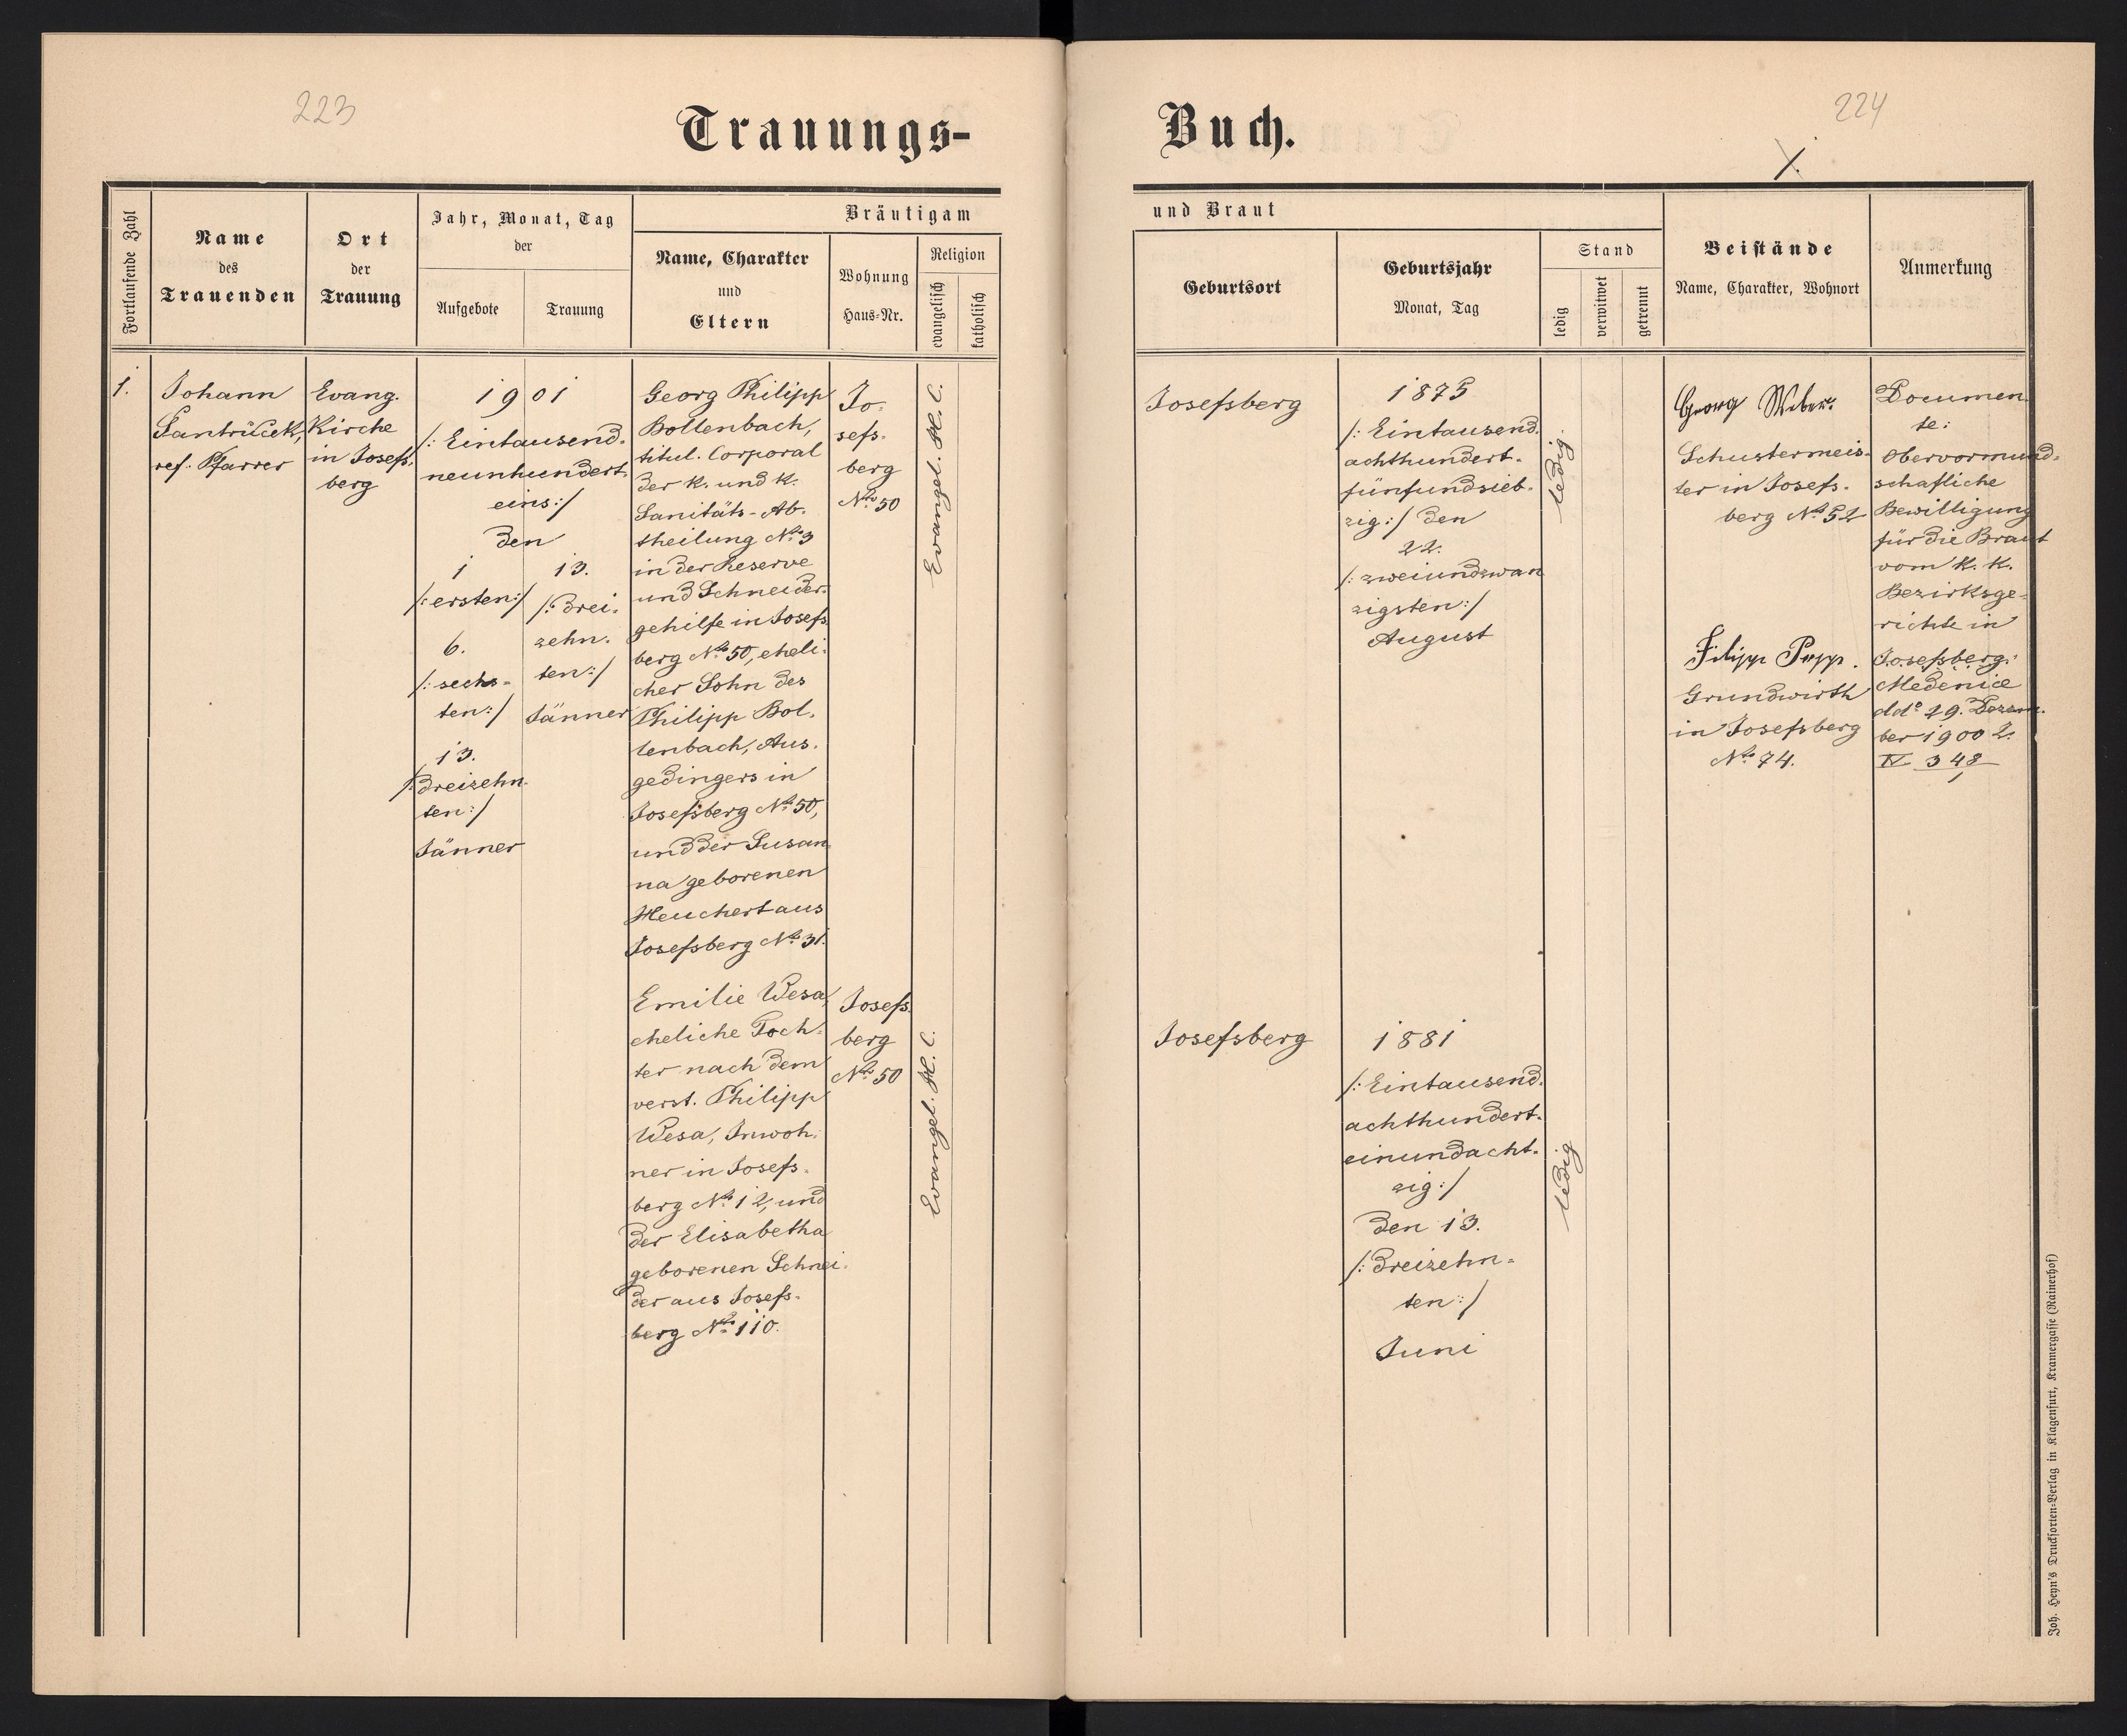 223
224
Trauungs-
Buch.
1.
Fortlaufende Zahl
Name
des
Trauenden
Ort
der
Trauung
Jahr, Monat, Tag
der
Aufgebote
Trauung
Bräutigam
Name, Charakter
und
Eltern
Wohnung
Haus-Nr.
Religion
evangelisch
katholisch
und Braut
Geburtsort
Geburtsjahr
Monat, Tag
Stand
ledig
verwitwet
getrennt
Beistände
Name, Charakter, Wohnort
Anmerkung
1.
Johann
Santrůček,
ref. Pfarrer
Evang.
Kirche
in Josefs-
berg
1901
/: Eintausend-
neunhundert
eins :/
den
1
/: ersten :/
6.
/: sechs-
ten :/
13.
/: dreizehn-
ten :/
Jänner
13.
/: drei-
zehn-
ten :/
Jänner
Georg Philipp
Bollenbach,
titul. Corporal
der k. und k.
Sanitäts-Ab-
theilung No. 3
in der Reserve
und Schneider-
gehilfe in Josefs-
berg No. 50, eheli-
cher Sohn des
Philipp Bol-
lenbach, Aus-
gedingers in
Josefsberg No. 50,
und der Susan-
na geborenen
Heuchert aus
Josefsberg No. 31.
Jo-
sefs-
berg
No. 50
Evangel. H. C.
Emilie Wesa,
eheliche Toch-
ter nach dem
verst. Philipp
Wesa, Inwoh-
ner in Josefs-
berg No. 12, und
der Elisabetha
geborenen Schnei-
der aus Josefs-
berg No. 110.
Josefs-
berg
No. 50
Evangel. H. C.
Josefsberg
1875
/: Eintausend-
achthundert-
fünfundsieb-
zig :/ den
22.
/: zweiundzwan
zigsten :/
August
ledig.
Georg Weber.
Schustermeis-
ter in Josefs-
berg No. 52
Filipp Popp.
Grundwirth
in Josefsberg
No. 74.
Documen-
te:
Obervormund-
schafliche
Bewilligung
für die Braut
vom k. k.
Bezirksge-
richte in
Josefsberg-
Medenice
ddo. 29. Dezem-
ber 1900 Z.
IV 348
Josefsberg
1881
/: Eintausend-
achthundert-
einundacht-
zig :/
den 13.
/: dreizehn-
ten :/
Juni
ledig
Joh. Heyn's Drucksorten-Verlag in Klagenfurt, Kramergasse (Rainerhof)